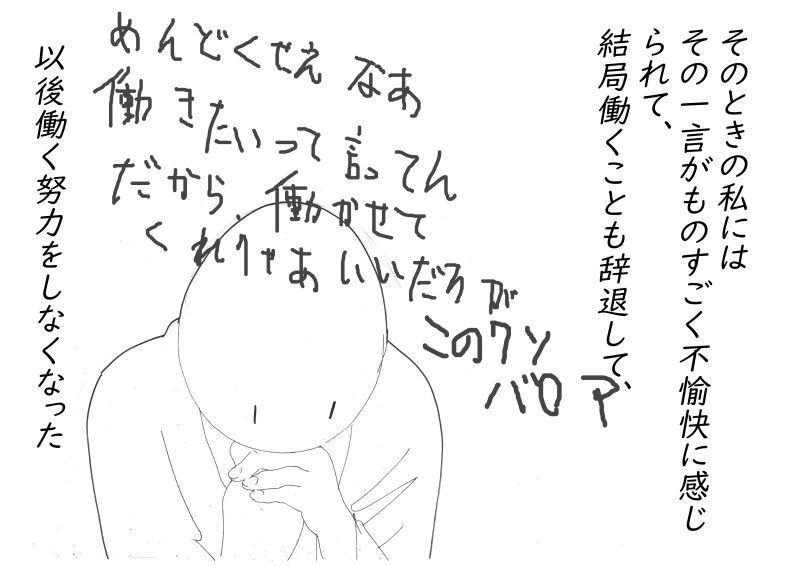 そのときの私には
その一言がものすごく不愉快に感じ
られて、
結局働くことも辞退して、
めんどくせえ なあ
働きたいって言ってん
だから、働かせて
くれりゃあいいだろが
このクソ
バロア
以後働く努力をしなくなった